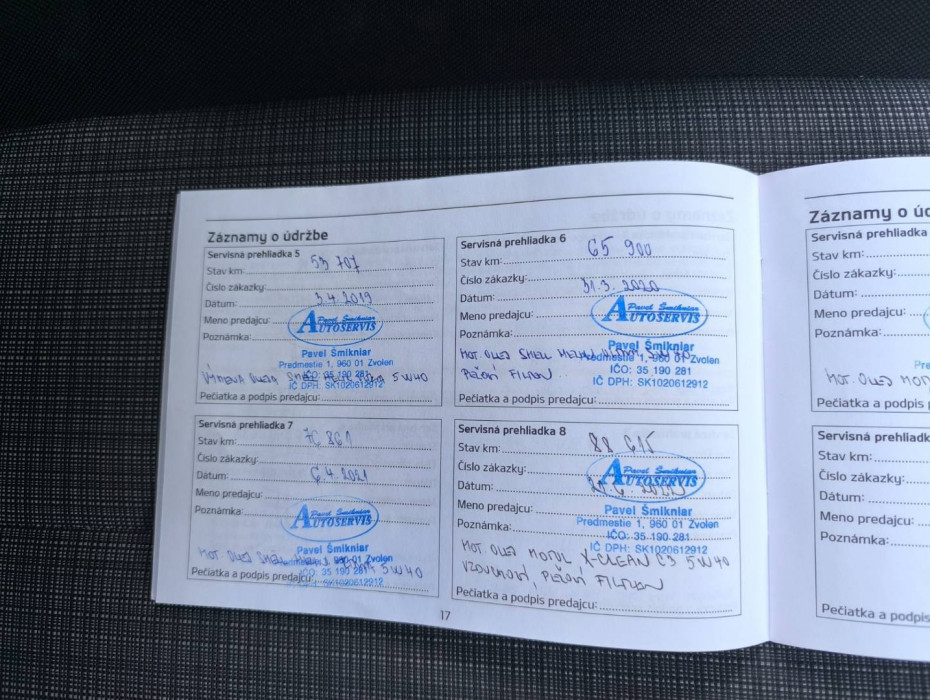 Záznamy o údržbe
Servisná prehliadka 5
Stav km: 53 707
Číslo zákazky:
Dátum: 3.4.2019
Meno predajcu:
Pavel Šmikniar
AUTOSERVIS
Poznámka:
Pavel Šmikniar
Predmestie 1, 960 01 Zvolen
IČO: 35 190 281
IČ DPH: SK1020612912
5W40
Pečiatka a podpis predajcu:
Servisná prehliadka 6
Stav km: 65 900
Číslo zákazky:
Dátum: 31.3.2020
Meno predajcu:
Pavel Šmikniar
AUTOSERVIS
Poznámka:
Pavel Šmikniar
Predmestie 1, 960 01 Zvolen
IČO: 35 190 281
IČ DPH: SK1020612912
MOT. OLEJ SHELL HELIX
Pečiatka a podpis predajcu:
Servisná prehliadka 7
Stav km: 76 861
Číslo zákazky:
Dátum: 6.4.2021
Meno predajcu:
Pavel Šmikniar
AUTOSERVIS
Poznámka:
Pavel Šmikniar
Predmestie 1, 960 01 Zvolen
IČO: 35 190 281
IČ DPH: SK1020612912
MOT. OLEJ SHELL 5W40
Pečiatka a podpis predajcu:
Servisná prehliadka 8
Stav km: 88 615
Číslo zákazky:
Dátum:
Meno predajcu:
Pavel Šmikniar
AUTOSERVIS
Poznámka:
Pavel Šmikniar
Predmestie 1, 960 01 Zvolen
IČO: 35 190 281
IČ DPH: SK1020612912
MOT. OLEJ MOTUL X-CLEAN C3 5W40
VZDUCHOVÝ, PEĽOVÝ FILTER
Pečiatka a podpis predajcu:
17
Záznamy o úd
Servisná prehliadka
Stav km:
Číslo zákazky:
Dátum:
Meno predajcu:
Poznámka:
MOT. OLEJ
Pečiatka a podpis
Servisná prehliadk
Stav km:
Číslo zákazky:
Dátum:
Meno predajcu:
Poznámka:
Pečiatka a podpis